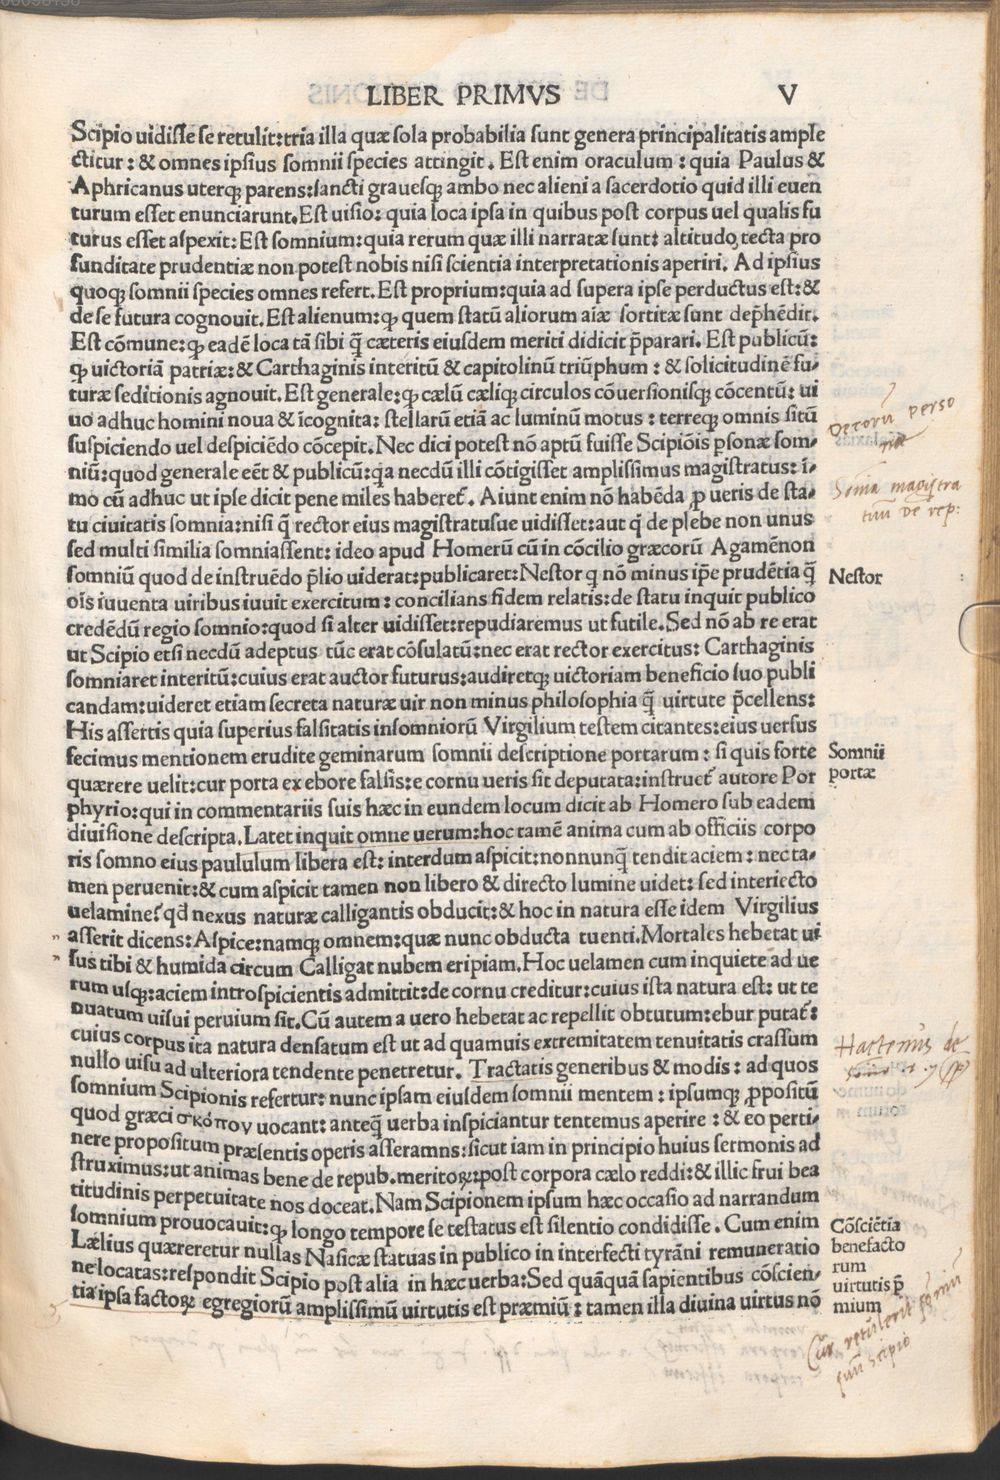 LIBER PRIMVS V
Scipio uidisse se retulit:tria illa quæ sola probabilia sunt genera principalitatis ample
ctitur: & omnes ipsius somnii species attingit. Est enim oraculum: quia Paulus &
Aphricanus uterqꝫ parens:sancti grauesqꝫ ambo nec alieni a sacerdotio quid illi euen
turum esset enunciarunt. Est uisio: quia loca ipsa in quibus post corpus uel qualis fu
turus esset aspexit: Est somnium:quia rerum quæ illi narratæ sunt: altitudo tecta pro
funditate prudentiæ non potest nobis nisi scientia interpretationis aperiri. Ad ipsius
quoqꝫ somnii species omnes refert. Est proprium:quia ad supera ipse perductus est:&
de se futura cognouit. Est alienum:ꝙ quem statū aliorum aiæ sortitæ sunt dep̄hēdit.
Est cōmune:ꝙ eadē loca tā sibi q̄ cæteris eiusdem meriti didicit p̄parari. Est publicū:
ꝙ uictoriā patriæ:& Carthaginis interitū & capitolinū triūphum: & solicitudinē fu-
turæ seditionis agnouit. Est generale:ꝙ cælū cæliqꝫ circulos cōuersionisqꝫ cōcentū: ui
uo adhuc homini noua & īcognita: stellarū etiā ac luminū motus: terreqꝫ omnis sitū
suspiciendo uel despiciēdo cōcepit. Nec dici potest nō aptū fuisse Scipiōis ꝑsonæ som-
niū:quod generale eēt & publicū:qa necdū illi cōtigisset amplissimus magistratus: ī-
mo cū adhuc ut ipse dicit pene miles haberet̄. Aiunt enim nō habēda ꝓ ueris de sta-
tu ciuitatis somnia:nisi q̄ rector eius magistratusue uidisset:aut q̄ de plebe non unus
sed multi similia somniassent: ideo apud Homerū cū in cōcilio græcorū Agamēnon
somniū quod de instruēdo p̄lio uiderat:publicaret:Nestor q nō minus ip̄e prudētia q̄
oīs iuuenta uiribus iuuit exercitum: concilians fidem relatis:de statu inquit publico
credēdū regio somnio:quod si alter uidisset:repudiaremus ut futile. Sed nō ab re erat
ut Scipio etsi necdū adeptus tūc erat cōsulatū:nec erat rector exercitus: Carthaginis
somniaret interitū:cuius erat auctor futurus:audiretqꝫ uictoriam beneficio suo publi
candam:uideret etiam secreta naturæ uir non minus philosophia q̄ uirtute p̄cellens:
His assertis quia superius falsitatis insomniorū Virgilium testem citantes:eius uersus
fecimus mentionem erudite geminarum somnii descriptione portarum: si quis forte
quærere uelit:cur porta ex ebore falsis:e cornu ueris sit deputata:instruet̄ autore Por
phyrio:qui in commentariis suis hæc in eundem locum dicit ab Homero sub eadem
diuisione descripta. Latet inquit omne uerum:hoc tamē anima cum ab officiis corpo
ris somno eius paululum libera est: interdum aspicit:nonnunq̄ tendit aciem: nec ta-
men peruenit:& cum aspicit tamen non libero & directo lumine uidet: sed interiecto
uelamine: qd̄ nexus naturæ calligantis obducit:& hoc in natura esse idem Virgilius
asserit dicens: Aspice:namqꝫ omnem:quæ nunc obducta tuenti. Mortales hebetat ui
sus tibi & humida circum Calligat nubem eripiam. Hoc uelamen cum inquiete ad ue
rum usqꝫ:aciem introspicientis admittit:de cornu creditur:cuius ista natura est: ut te
nuatum uisui peruium sit. Cū autem a uero hebetat ac repellit obtutum:ebur putat̄:
cuius corpus ita natura densatum est ut ad quamuis extremitatem tenuitatis crassum
nullo uisu ad ulteriora tendente penetretur. Tractatis generibus & modis: ad quos
somnium Scipionis refertur: nunc ipsam eiusdem somnii mentem: ipsumqꝫ ꝓpositū
quod græci σκόπον uocant: anteq̄ uerba inspiciantur tentemus aperire: & eo perti-
nere propositum præsentis operis asseramns:sicut iam in principio huius sermonis ad
struximus:ut animas bene de repub.meritoꝝ:post corpora cælo reddi:& illic frui bea
titudinis perpetuitate nos doceat. Nam Scipionem ipsum hæc occasio ad narrandum
somnium prouocauit:ꝙ longo tempore se testatus est silentio condidisse. Cum enim
Lælius quæreretur nullas Nasicæ statuas in publico in interfecti tyrāni remuneratio
ne locatas:respondit Scipio post alia in hæc uerba:Sed quāquā sapientibus cōscien-
tia ipsa factoꝝ egregiorū amplissimū uirtutis est præmiū: tamen illa diuina uirtus nō
Decorū perso
næ
magistra
tuū de rep:
Nestor
Somnii
portæ
Hactenus de
Cōsciētia
benefacto
rum
uirtutis p̄
mium
Cur retulerit somniū
suū Scipio